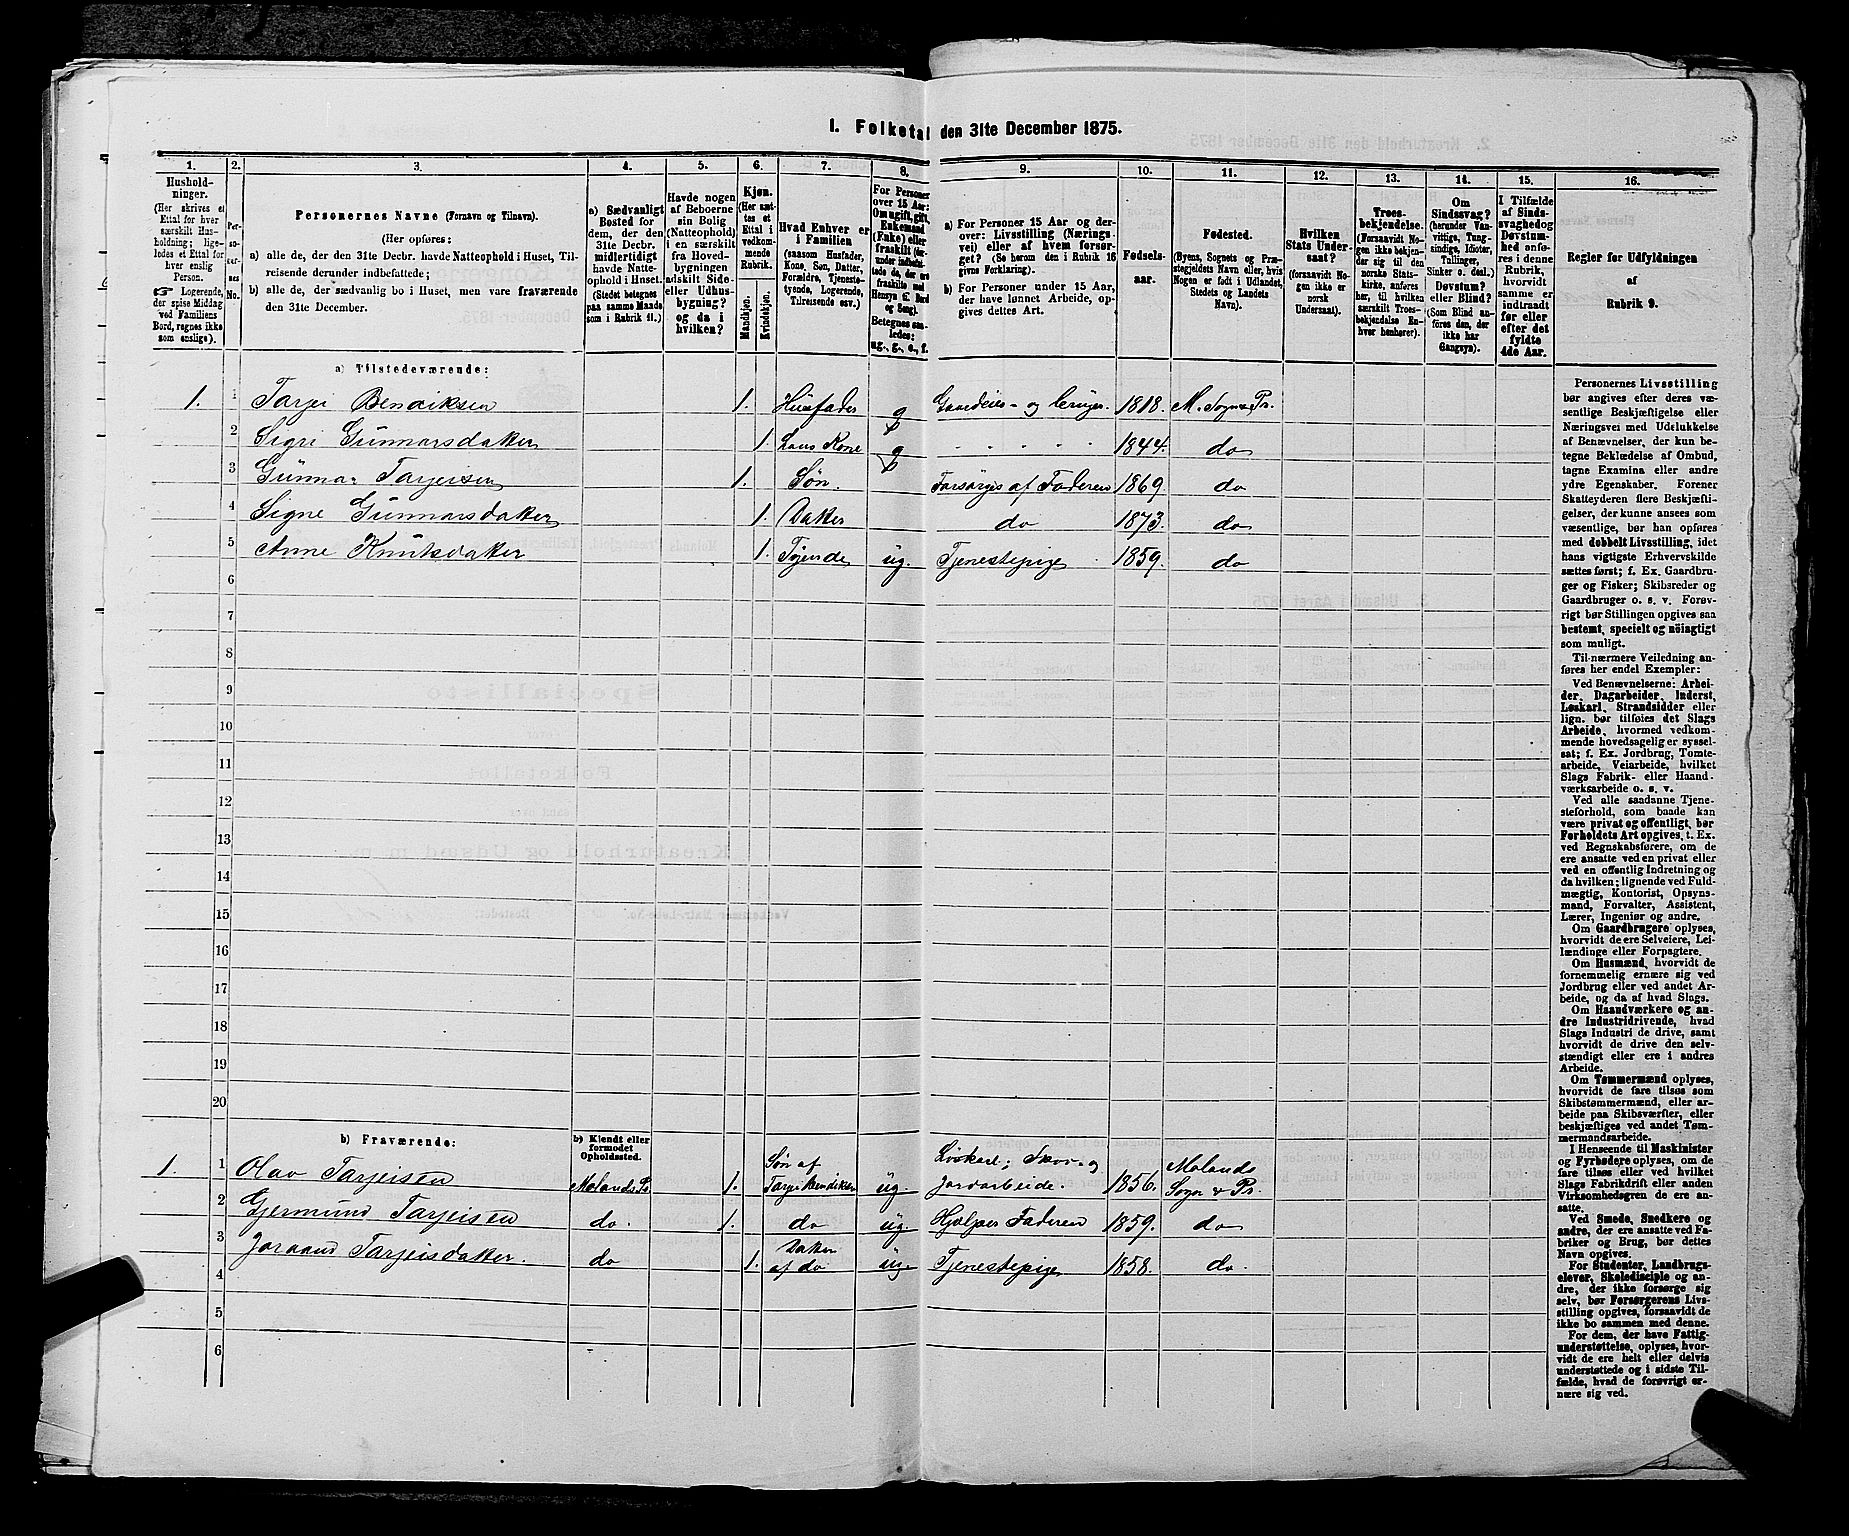 1. Folketal den 31te December 1875.
1. 2. 3. 4. 5. 6. 7. 8. 9. 10. 11. 12. 13. 14. 15. 16.
Hushold-
ninger.
(Her skrives et
Ettal for hver
særskilt Hus-
holdning; lige-
ledes et Ettal for
hver enslig
Person.
☞ Logerende,
der spise Middag
ved Familiens
Bord, regnes ikke
som enslige).
Per-
so-
ner-
nes
No.
Personernes Navne (Fornavn og Tilnavn).
(Her opføres:
a) alle de, der den 31te Decbr. havde Natteophold i Huset, Til-
reisende derunder indbefattede;
b) alle de, der sædvanlig bo i Huset, men vare fraværende
den 31te December.
a) Sædvanligt
Bosted for
dem, der den
31te Decbr.
midlertidigt
havde Natte-
ophold i Huset.
(Stedet betegnes
paa samme Maade
som i Rubrik 11.)
Havde nogen
af Beboerne
sin Bolig
(Natteophold)
i en særskilt
fra Hoved-
bygningen
adskilt Side-
eller Udhus-
bygning?
og da i
hvilken?
Kjøn.
(Her sæt-
tes et
Ettal i
vedkom-
mende
Rubrik.
Mandkjøn.
Kvindekjøn.
Hvad Enhver er
i Familien
(saasom Husfader,
Kone, Søn, Datter,
Forældre, Tjeneste-
tyende, Logerende,
Tilreisende osv.)
For Personer
over 15 Aar:
Om ugift, gift,
Enkemand
(Enke) eller
fraskilt
Betegnes saa-
ledes:
ug., g., e., f.
a) For Personer 15 Aar og der-
over: Livsstilling (Nærings-
vei) eller af hvem forsør-
get? (Se herom den i Rubrik 16
givne Forklaring).
b) For Personer under 15 Aar,
der have lønnet Arbeide, op-
gives dettes Art.
Fødsels-
aar.
Fødested.
(Byens, Sognets og Præ-
stegjeldets Navn eller, hvis
Nogen er født i Udlandet,
Stedets og Landets
Navn).
Hvilken
Stats Under-
saat?
(forsaavidt No-
gen ikke er
norsk
Undersaat).
Troes-
bekjendelse.
(Forsaavidt No-
gen ikke bekjen-
der sig til den
norske Stats-
kirke, anføres
her, til hvilken
særskilt Troes-
bekjendelse En-
hver henhører).
Om
Sindssvag?
(herunder Van-
vittige, Tung-
sindige, Idioter,
Tullinger,
Sinker o. desl.)
Døvstum?
eller Blind?
(Som Blind an-
føres den, der
ikke har
Gangsyn).
I Tilfælde
af Sinds-
svaghed og
Døvstum-
hed anfø-
res i denne
Rubrik,
hvorvidt
samme er
indtraadt
før eller
efter det
fyldte
4de Aar.
Regler for Udfyldningen
af
Rubrik 9.
a) Tilstedeværende:
1. 1 Tarjei Bendiksen 1. Husfader g Gaardeier- og bruger. 1818. M. Sogn & Pr.
2 Sigri Gunnarsdatter 1. hans Kone g " " " " 1844. do
3 Gunnar Tarjeisen 1. Søn. Forsørges af Faderen 1869. do
4 Signe Gunnarsdatter 1. Datter do 1873. do
5 Anne Knutsdatter 1. Tyende ug. Tjenestepige 1859. do
6
7
8
9
10
11
12
13
14
15
16
17
18
19
20
b) Fraværende:
b) Kjendt eller
formodet
Opholdssted.
1. 1 Olav Tarjeisen Molands Pr. 1. Søn af Tarjei Bendiksen ug. Løskarl; Skov- og Jordarbeide. 1856. Molands Sogn & Pr.
2 Gjermund Tarjeisen do. 1. do ug. Hjelper Faderen 1859. do
3 Joraand Tarjeisdatter. do 1. Datter af do ug. Tjenestepige 1858. do.
4
5
6
Personernes Livsstilling
bør angives efter deres væ-
sentlige Beskjæftigelse eller
Næringsvei med Udelukkelse
af Benævnelser, der kun be-
tegne Beklædelse af Ombud,
tagne Examina eller andre
ydre Egenskaber. Forener
Skatteyderen flere Beskjæfti-
gelser, der kunne ansees som
væsentlige, bør han opføres
med dobbelt Livsstilling, idet
hans vigtigste Erhvervskilde
sættes først; f. Ex. Gaardbru-
ger og Fisker; Skibsreder og
Gaardbruger o. s. v. Forøv-
rigt bør Stillingen opgives saa
bestemt, specielt og nöiagtigt
som muligt.
Til nærmere Veiledning an-
føres her endel Exempler:
Ved Benævnelserne: Arbei-
der, Dagarbeider, Inderst,
Løskarl, Strandsidder eller
lign. bør tilføies det Slags
Arbeide, hvormed vedkom-
mende hovedsagelig er syssel-
sat; f. Ex. Jordbrug, Tomte-
arbeide, Veiarbeide, hvilket
Slags Fabrik- eller Haand-
værksarbeide o. s. v.
Ved alle saadanne Tjene-
steforhold, som baade kan
være privat og offentligt, bør
Forholdets Art opgives, t. Ex.
ved Regnskabsførere, om de
ere ansatte ved en privat eller
ved en offentlig Indretning og
da hvilken; lignende ved Fuld-
mægtig, Kontorist, Opsyns-
mand, Forvalter, Assistent,
Lærer, Ingeniør og andre.
Om Gaardbrugere oplyses,
hvorvidt de ere Selveiere, Lei-
lændinge eller Forpagtere.
Om Husmænd, hvorvidt de
fornemmelig ernære sig ved
Jordbrug eller ved andet Ar-
beide, og da af hvad Slags.
Om Haandværkere og an-
dre Industridrivende, hvad
Slags Industri de drive, samt
hvorvidt de drive den selv-
stændigt eller ere i andres
Arbeide.
Om Tømmermænd oplyses,
hvorvidt de fare tilsøs som
Skibstømmermænd, eller ar-
beide paa Skibsværfter, eller
beskjæftiges ved andet Tøm-
mermandsarbeide.
I Henseende til Maskinister
og Fyrbødere oplyses, om de
fare tilsøs eller ved hvilket
Slags Fabrikdrift eller anden
Virksomhed de ere an-
satte.
Ved Smede, Snedkere og
andre, der ere ansatte ved Fa-
briker og Brug, bør dettes
Navn opgives.
For Studenter, Landbrugs-
elever, Skoledisciple og an-
dre, der ikke forsørge sig
selv, bør Forsørgerens Livs-
stilling opgives, forsaavidt de
ikke bo sammen med denne.
For dem, der have Fattig-
understøttelse, oplyses, hvor-
vidt de ere helt eller delvis
understøttede og i sidste Til-
fælde, hvad de forøvrigt er-
nære sig ved.